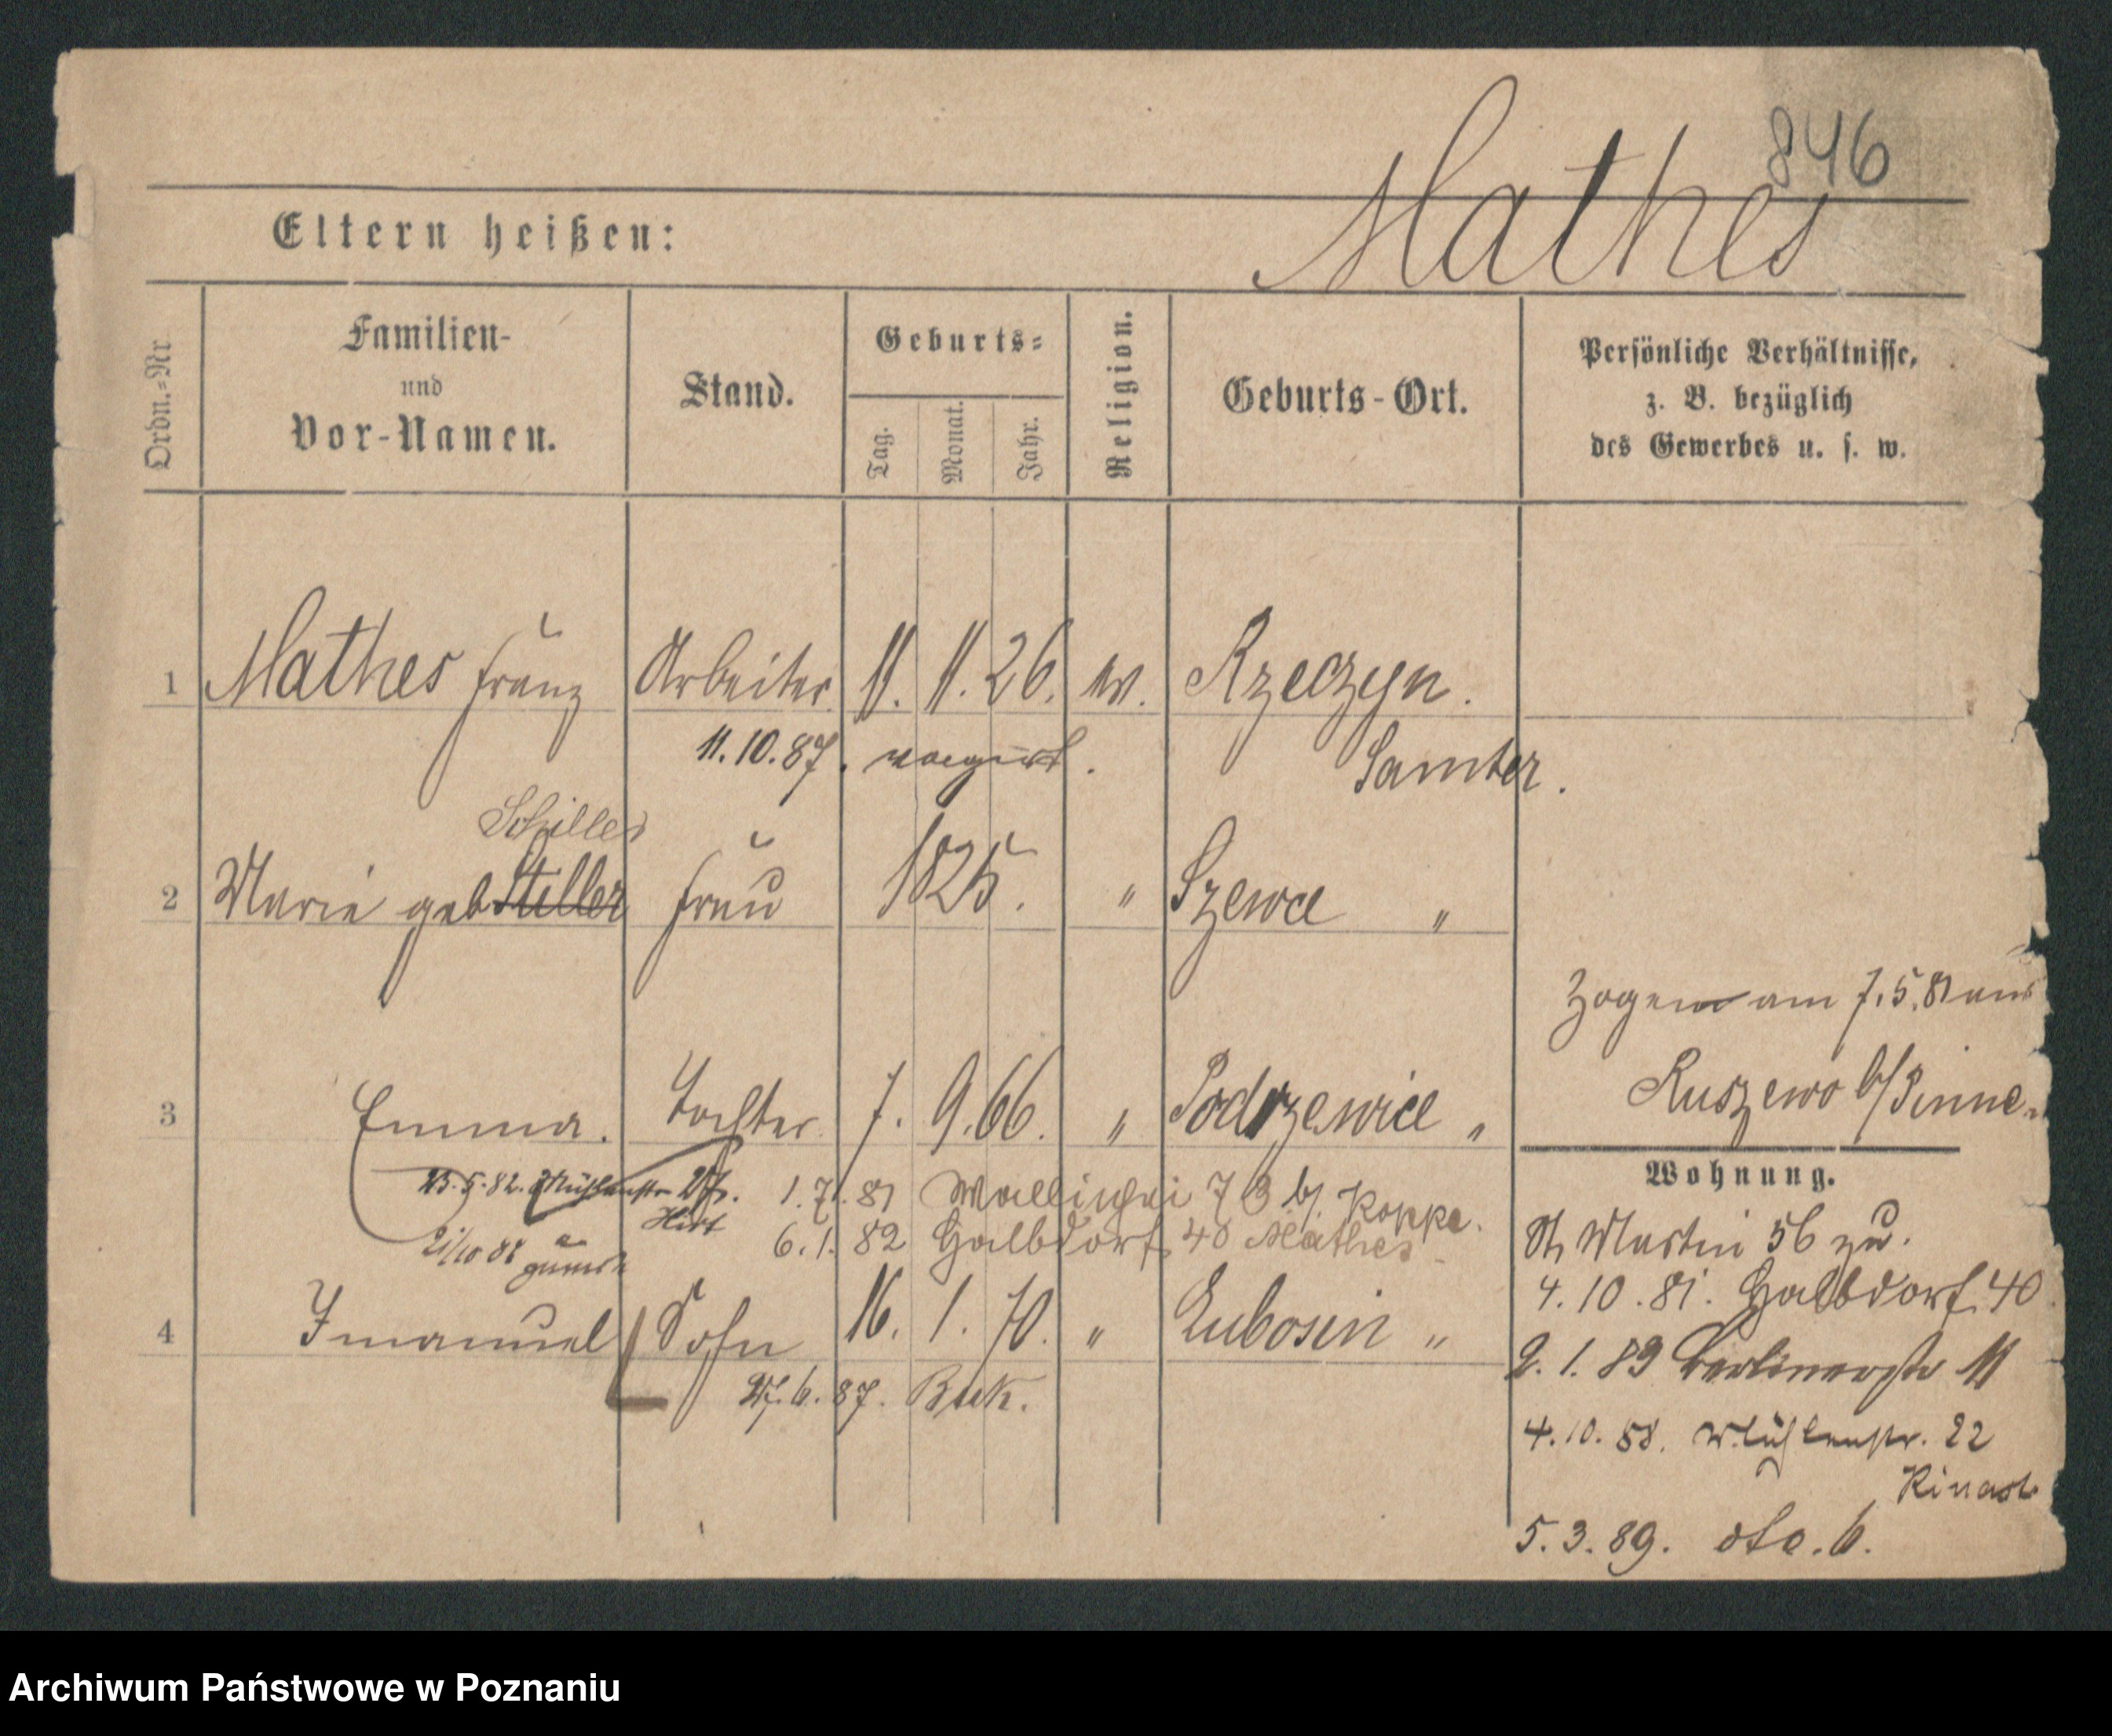 846
Mathes
Eltern heißen:
Ordn.=Nr
Familien-
und
Vor-Namen.
Stand.
Geburts=
Tag.
Monat.
Jahr.
Religion.
Geburts-Ort.
Persönliche Verhältnisse,
z. B. bezüglich
des Gewerbes u. s. w.
1 Mathes Franz Arbeiter 11. 11. 26. ev. Rzeczyn.
11.10.87. Samter.
Schiller
2 Marie geb Stiller Frau 1825. " Szewce "
Zogen am 7.5.81 aus
Ruszewo b/Pinne
3 Emma. Tochter 7. 9. 66. " Podrzewice "
Wohnung.
23.5.82. Mühlenstr 27. 1.7.81 Wallischei 73 b/ Koppe.
Hirt 6.1.82 Halbdorf. 40 Mathes
21/10 88
St. Martin 56 zu.
4.10.81. Halbdorf. 40
4 Imanuel Sohn 16. 1. 70. " Lubosin "
2.1.89 Berlinerstr 11
27.6.87. Buk.
4.10.88. Mühlenstr. 22
5.3.89. dto. 6.
Archiwum Państwowe w Poznaniu